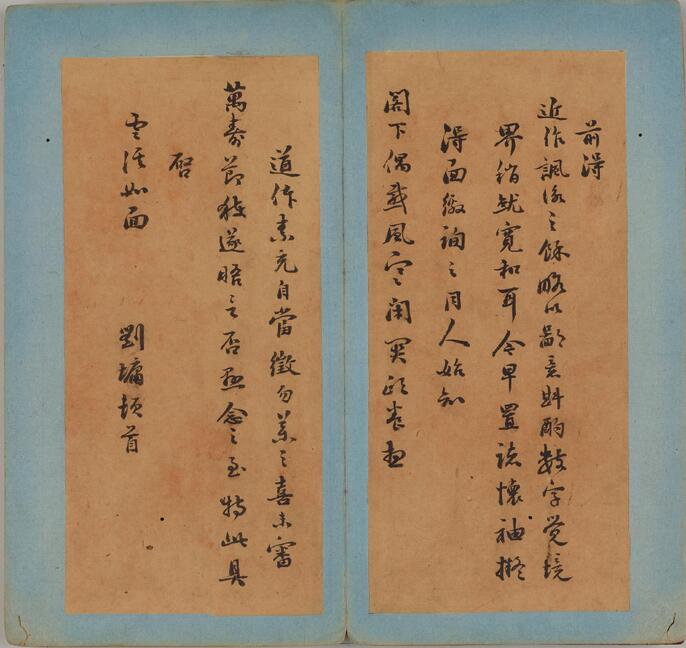 前得
近作諷詠之餘略以鄙意斟酌數字覺境
界稍就寬和耳今早置諸懷袖擬
得面繳詢之同人始知
閣下偶感風寒閉關頤養想
道体素充自當徵勿藥之喜未審
萬壽節能遂晤否念之至特此具
啓
如面　劉墉頓首